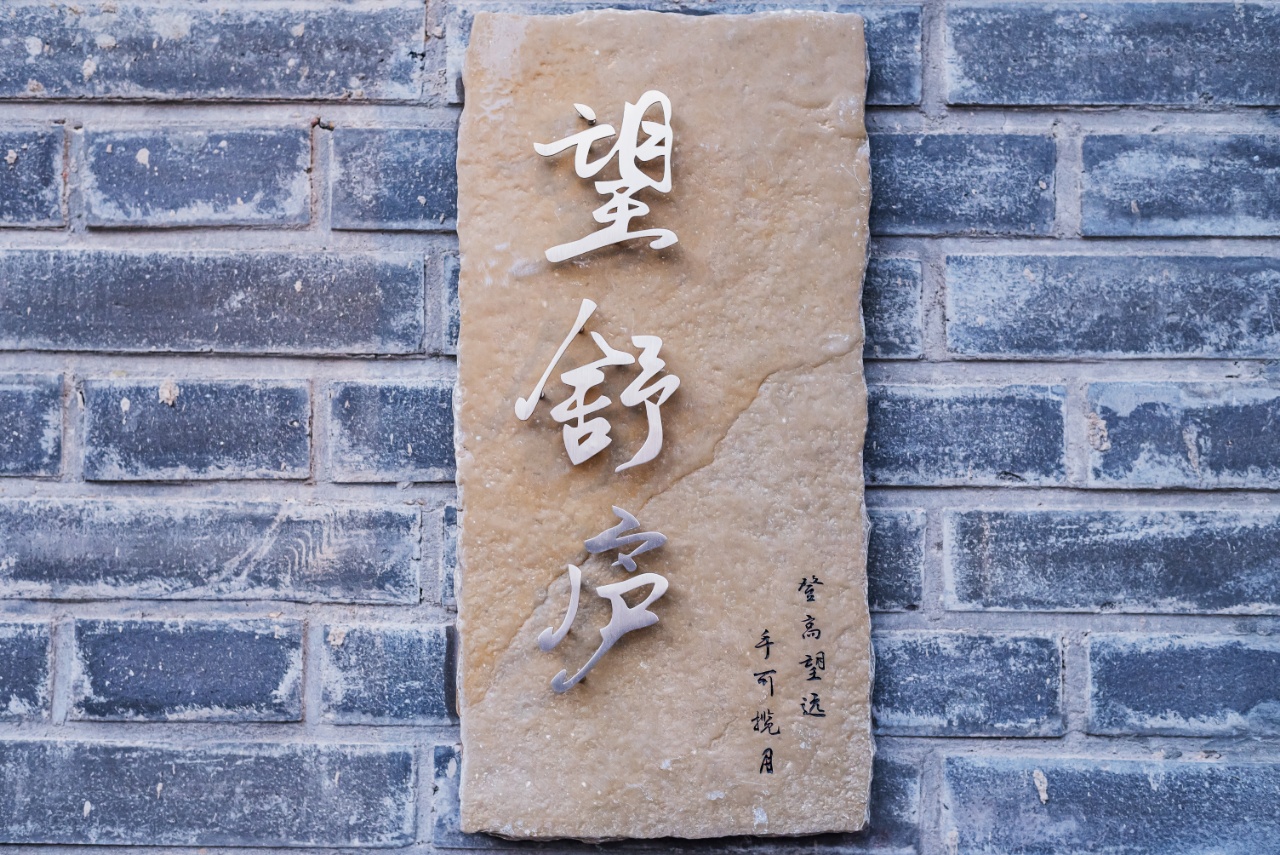 望舒庐
登高望远
手可揽月